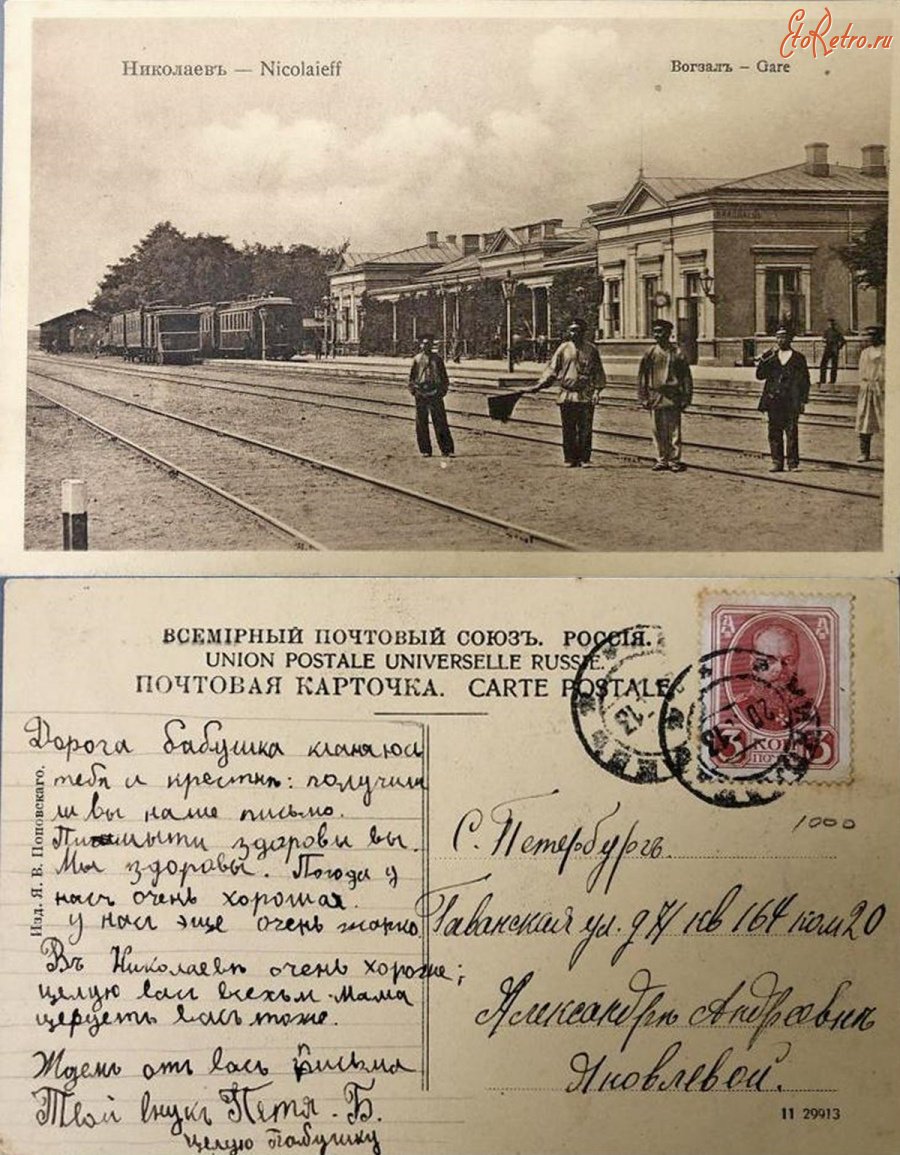 EtoRetro.ru
Николаевъ — Nicolaieff
Вогзалъ – Gare
ВСЕМІРНЫЙ ПОЧТОВЫЙ СОЮЗЪ. РОССІЯ.
UNION POSTALE UNIVERSELLE RUSSIE.
ПОЧТОВАЯ КАРТОЧКА. CARTE POSTALE
Изд. Я. В. Поповскаго.
Дорога бабушка кланяюсь
тебѣ и крестнѣ: получили
ли вы наше письмо.
здорови вы.
Мы здоровы. Погода у
насъ очень хорошая.
у нас эще очень жарко
Въ Николаевѣ очень хороше;
целую вас всехъ. Мама
церуетъ васъ тоже.
Ждемъ отъ васъ письма
Твой внукъ Петя. Б.
целую бабушку
1000
С. Петербургъ.
Гаванская ул. д 71 кв 164 ком 20
Александрѣ Андрѣевнѣ
Яковлевой.
11 29913
13
20
3 КОП 3